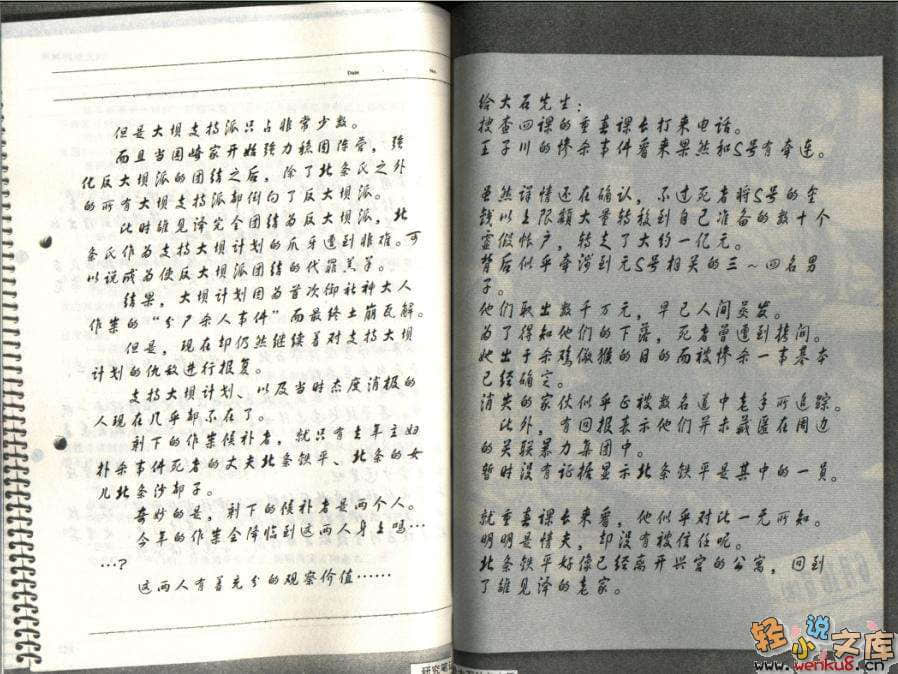 Date
No.
但是大坝支持派只占非常少数。
而且当园崎家开始强力稳固阵营，强
化反大坝派的团结之后，除了北条氏之外
的所有大坝支持派都倒向了反大坝派。
此时雏见泽完全团结为反大坝派，北
条氏作为支持大坝计划的爪牙遭到非难。可
以说成为使反大坝派团结的代罪羔羊。
结果，大坝计划因为首次御社神大人
作祟的“分尸杀人事件”而最终土崩瓦解。
但是，现在却仍然继续着对支持大坝
计划的仇敌进行报复。
支持大坝计划、以及当时态度消极的
人现在几乎都不在了。
剩下的作祟候补者，就只有去年主妇
扑杀事件死者的丈夫北条铁平、北条的女
儿北条沙都子。
奇妙的是，剩下的候补者是两个人。
今年的作祟会降临到这两人身上吗…
…？
这两人有着充分的观察价值……
给大石先生：
搜查四课的重喜课长打来电话。
王子川的惨杀事件看来果然和S号有牵连。
虽然详情还在确认，不过死者将S号的金
钱以上限额大量转移到自己准备的数十个
虚假帐户，转走了大约一亿元。
背后似乎牵涉到元S号相关的三～四名男
子。
他们取出数千万元，早已人间蒸发。
为了得知他们的下落，死者曾遭到拷问。
她出于杀鸡儆猴的目的而被惨杀一事基本
已经确定。
消失的家伙似乎正被数名道中老手所追踪。
此外，有回报表示他们并未藏匿在周边
的关联暴力集团中。
暂时没有证据显示北条铁平是其中的一员。
就重喜课长来看，他似乎对此一无所知。
明明是情夫，却没有被信任呢。
北条铁平好像已经离开兴宫的公寓，回到
了雏见泽的老家。
轻小说文库
www.wenku8.cn